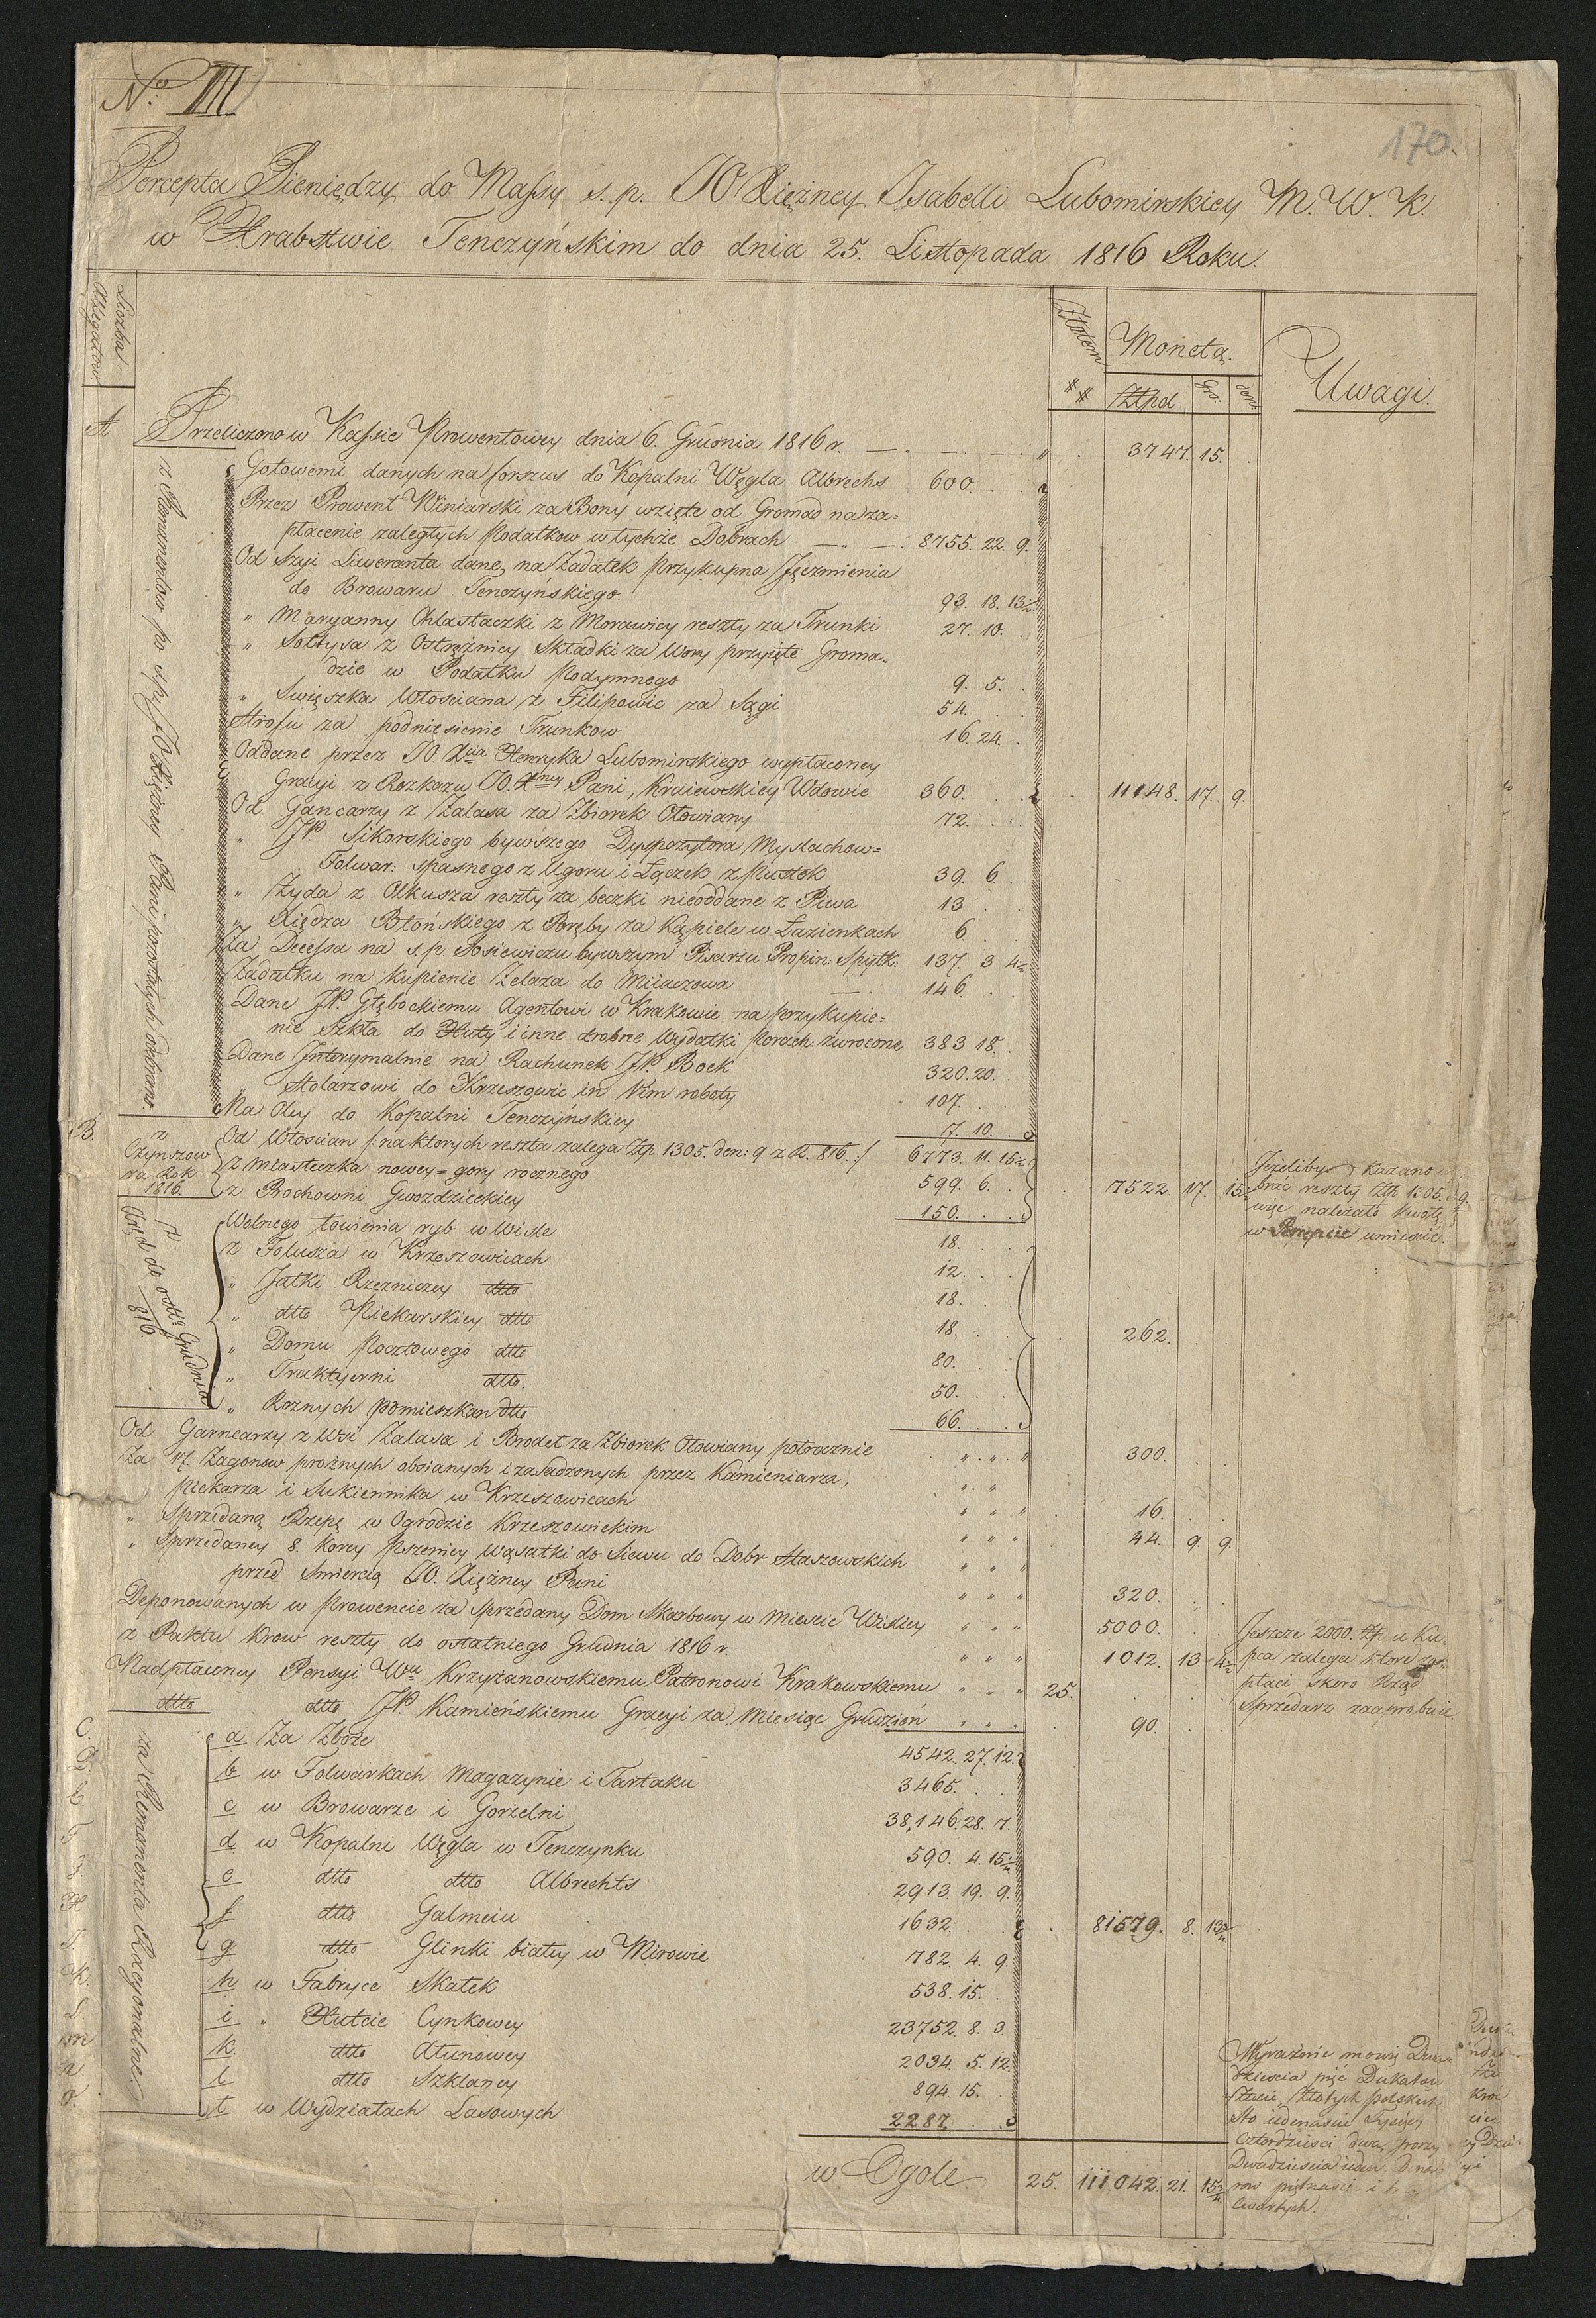 No. III
170.
Percepta Pieniędzy do Massy s. p. JO Xiężney Isabelli Lubomirskiey M. W. K.
w Hrabstwie Tenczyńskim do dnia 25. Listopada 1816 Roku.
Liczba Allegatow
Złotem
Moneta.
Uwagi.
## Ztpol Gro: den:
A Przeliczono w Kassie Prowentowey dnia 6. Grudnia 1816 r. — . — . — . " . 3747. 15.
z Remanentow po s. p. JO Xiężney Pani pozostałych odebrano.
Gotowemi danych na forszus do Kopalni Węgla Albrechs 600.
Przez Prowent Winiarski za Bony wzięte od Gromad na za=
płacenie zaległych Podatkow w tychże Dobrach — " — . 8755. 22. 9.
Od Szyi Liweranta dane, na Zadatek Przykupna Jęczmienia
do Browaru Tenczyńskiego. 93. 18. 13½
" Maryanny Chlastaczki z Morawicy reszty za Trunki 27. 10.
" Sołtysa z Ostrężnicy Składki za Wory przyięte Groma=
dzie w Podatku Podymnego 9. 5.
" Swięszka Włościana z Filipowic za Sągi 54.
Strofu za podniesienie Trunkow 16. 24.
Oddane przez JO. Xcia Henryka Lubomirskiego wypłaconey
Gracyi z Rozkazu JO. Xney Pani, Kraiewskiey Wdowie 360. 11148. 17. 9.
Od Gancarzy z Zalasa za Zbiorek Ołowiany 72.
" JP. Sikorskiego bywszego Dyspozytora Myslachow=
Folwar: spasnego z Ugoru i Łączek z Pustek 39. 6.
" Żyda z Olkusza reszty za beczki nieoddane z Piwa 13
" Xiędza Błońskiego z Poręby za Kąpiele w Łazienkach 6
Za Decessa na s. p. Sosiewiczu bywszym Pisarzu Propin: Spytk: 137. 3 4½
Zadatku na Kupienie Żelaza do Miłaczowa 146.
Dane JP. Głębockiemu Agentowi w Krakowie na przykupie=
nie Szkła do Huty i inne drobne Wydatki Porach: zwrocone 383 18.
Dane Interymalnie na Rachunek JP. Bock 320. 20.
" Stolarzowi do Krzeszowic in Vim roboty 107.
Na Oley do Kopalni Tenczyńskiey 7. 10.
B. z Czynszow za Rok 1816.
Od Włościan /: na ktorych reszta zalega Złp 1305. den: 9. z R. 816. :/ 6773. 11. 15½
z Miasteczka nowey=gory rocznego 599. 6. 7522. 17. 15½
z Prochowni Gwozdzieckiey 150.
Jeżeliby kazano
brać reszty Złp 1305. d 9
więc należało Kwotę tę
w Percepcie umieścić.
z Aręd do ostt: Grudnia 816.
Wolnego łowienia ryb w Wisle 18.
z Folusza w Krzeszowicach 12.
" Jatki Rzezniczey dtto 18.
" dtto Piekarskiey dtto 18. 262.
" Domu Pocztowego dtto 80.
" Traktyerni dtto. 50.
" Roznych pomieszkan dtto 66.
Od Garncarzy z Wsi Zalasa i Brodeł za Zbiorek Ołowiany potrocznie " " " 300.
Za 17. Zagonow prożnych obsianych i zasadzonych przez Kamieniarza,
Piekarza i Sukiennika w Krzeszowicach " " " 16.
" Sprzedaną Rzepę w Ogrodzie Krzeszowickim " " " 44. 9. 9.
" Sprzedaney 8. Korcy Pszenicy Wąsatki do Siewu do Dobr Staszowskich
przed Smiercią JO. Xiężney Pani " " " 320.
Deponowanych w Prowencie za Sprzedany Dom Skarbowy w Miescie Wislicy " " " 5000.
z Paktu Krow reszty do ostatniego Grudnia 1816 r. " " " 1012. 13. 4½
Nadpłaconey Pensyi Wu Krzyżanowskiemu Patronowi Krakowskiemu " " " 25.
dtto dtto JP. Kamieńskiemu Gracyi za Miesiąc Grudzień " " " 90.
Jeszcze 2000. Złp u Ku=
pca zalega ktore za=
płaci skoro Rząd
Sprzedarz zaaprobuie.
za Remanenta Racyonalne.
C. a Za Zboże 4542. 27. 12.
D. b w Folwarkach Magazynie i Tartaku 3465.
E. c w Browarze i Gorzelni 38,146. 28. 7.
F. d w Kopalni Węgla w Tenczynku 590. 4. 15½
G. e dtto dtto Albrechts 2913. 19. 9.
H f dtto Galmeiu 1632. 81579. 8. 13½
I. g dtto Glinki białey w Mirowie 782. 4. 9.
K. h w Fabryce Skałek 538. 15.
L. i " Hutcie Cynkowey 23752. 8. 3.
m k. dtto Ałunowey 2034. 5. 12.
n. l dtto Szklaney 894. 15.
o. t w Wydziałach Lasowych 2287.
w Ogole 25. 111,042. 21. 15¾
Wyraźnie mowię Dwa
dzieścia pięć Dukatow
Złotych Polskich
Sto iedenaście Tysięcy
Czterdzieści dwa, groszy
Dwadzieścia ieden D
row piętnaście i
Czwartych.